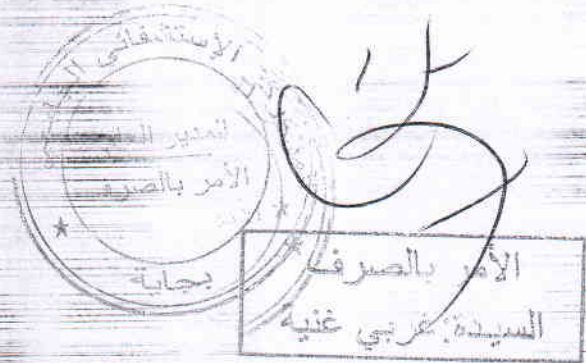 الإستشفائي
المدير العام
الأمر بالصرف
بجاية
الأمر بالصرف
السيدة: غربي غنية